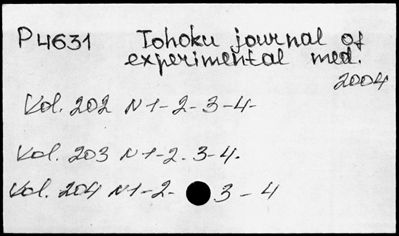 P4631 Tohoku journal of
experimental med.
2004
Vol. 202 N 1-2-3-4-
Vol. 203 N 1-2-3-4.
Vol. 204 N 1-2- 3-4